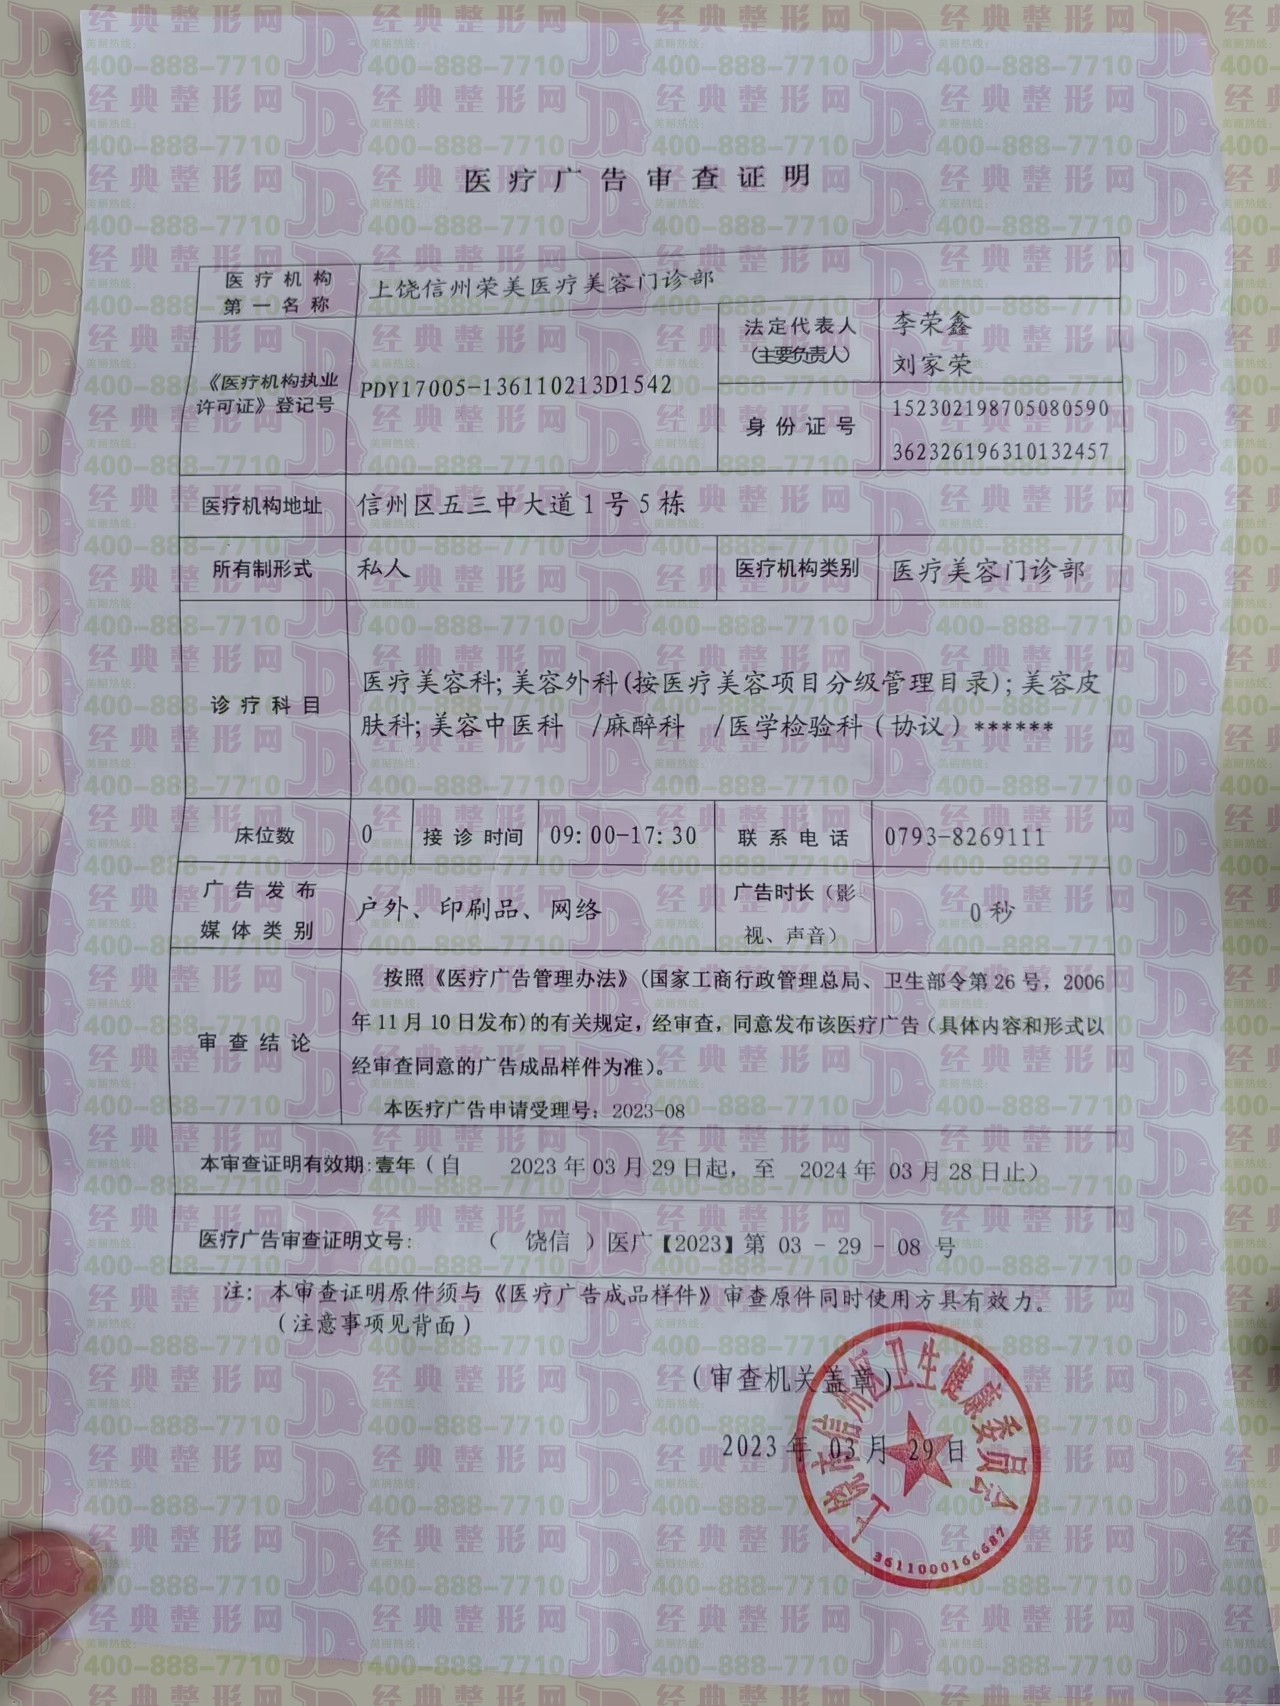 医疗广告审查证明
医疗机构
第一名称
上饶信州荣美医疗美容门诊部
《医疗机构执业
许可证》登记号
PDY17005-136110213D1542
法定代表人
(主要负责人)
李荣鑫
刘家荣
身份证号
152302198705080590
362326196310132457
医疗机构地址
信州区五三中大道1号5栋
所有制形式
私人
医疗机构类别
医疗美容门诊部
诊疗科目
医疗美容科;美容外科(按医疗美容项目分级管理目录);美容皮
肤科;美容中医科 /麻醉科 /医学检验科(协议)******
床位数
0
接诊时间
09:00-17:30
联系电话
0793-8269111
广告发布
媒体类别
户外、印刷品、网络
广告时长(影
视、声音)
0秒
审查结论
按照《医疗广告管理办法》(国家工商行政管理总局、卫生部令第26号,2006
年11月10日发布)的有关规定,经审查,同意发布该医疗广告(具体内容和形式以
经审查同意的广告成品样件为准)。
本医疗广告申请受理号:2023-08
本审查证明有效期:壹年(自 2023年03月29日起,至 2024年 03月28日止)
医疗广告审查证明文号: ( 饶信 )医广【2023】第 03 - 29 - 08 号
注: 本审查证明原件须与《医疗广告成品样件》审查原件同时使用方具有效力。
(注意事项见背面)
(审查机关盖章)
2023年 03月 29日
上饶市信州区卫生健康委员会
3611000166687
经典整形网
美丽热线:
400-888-7710
JD